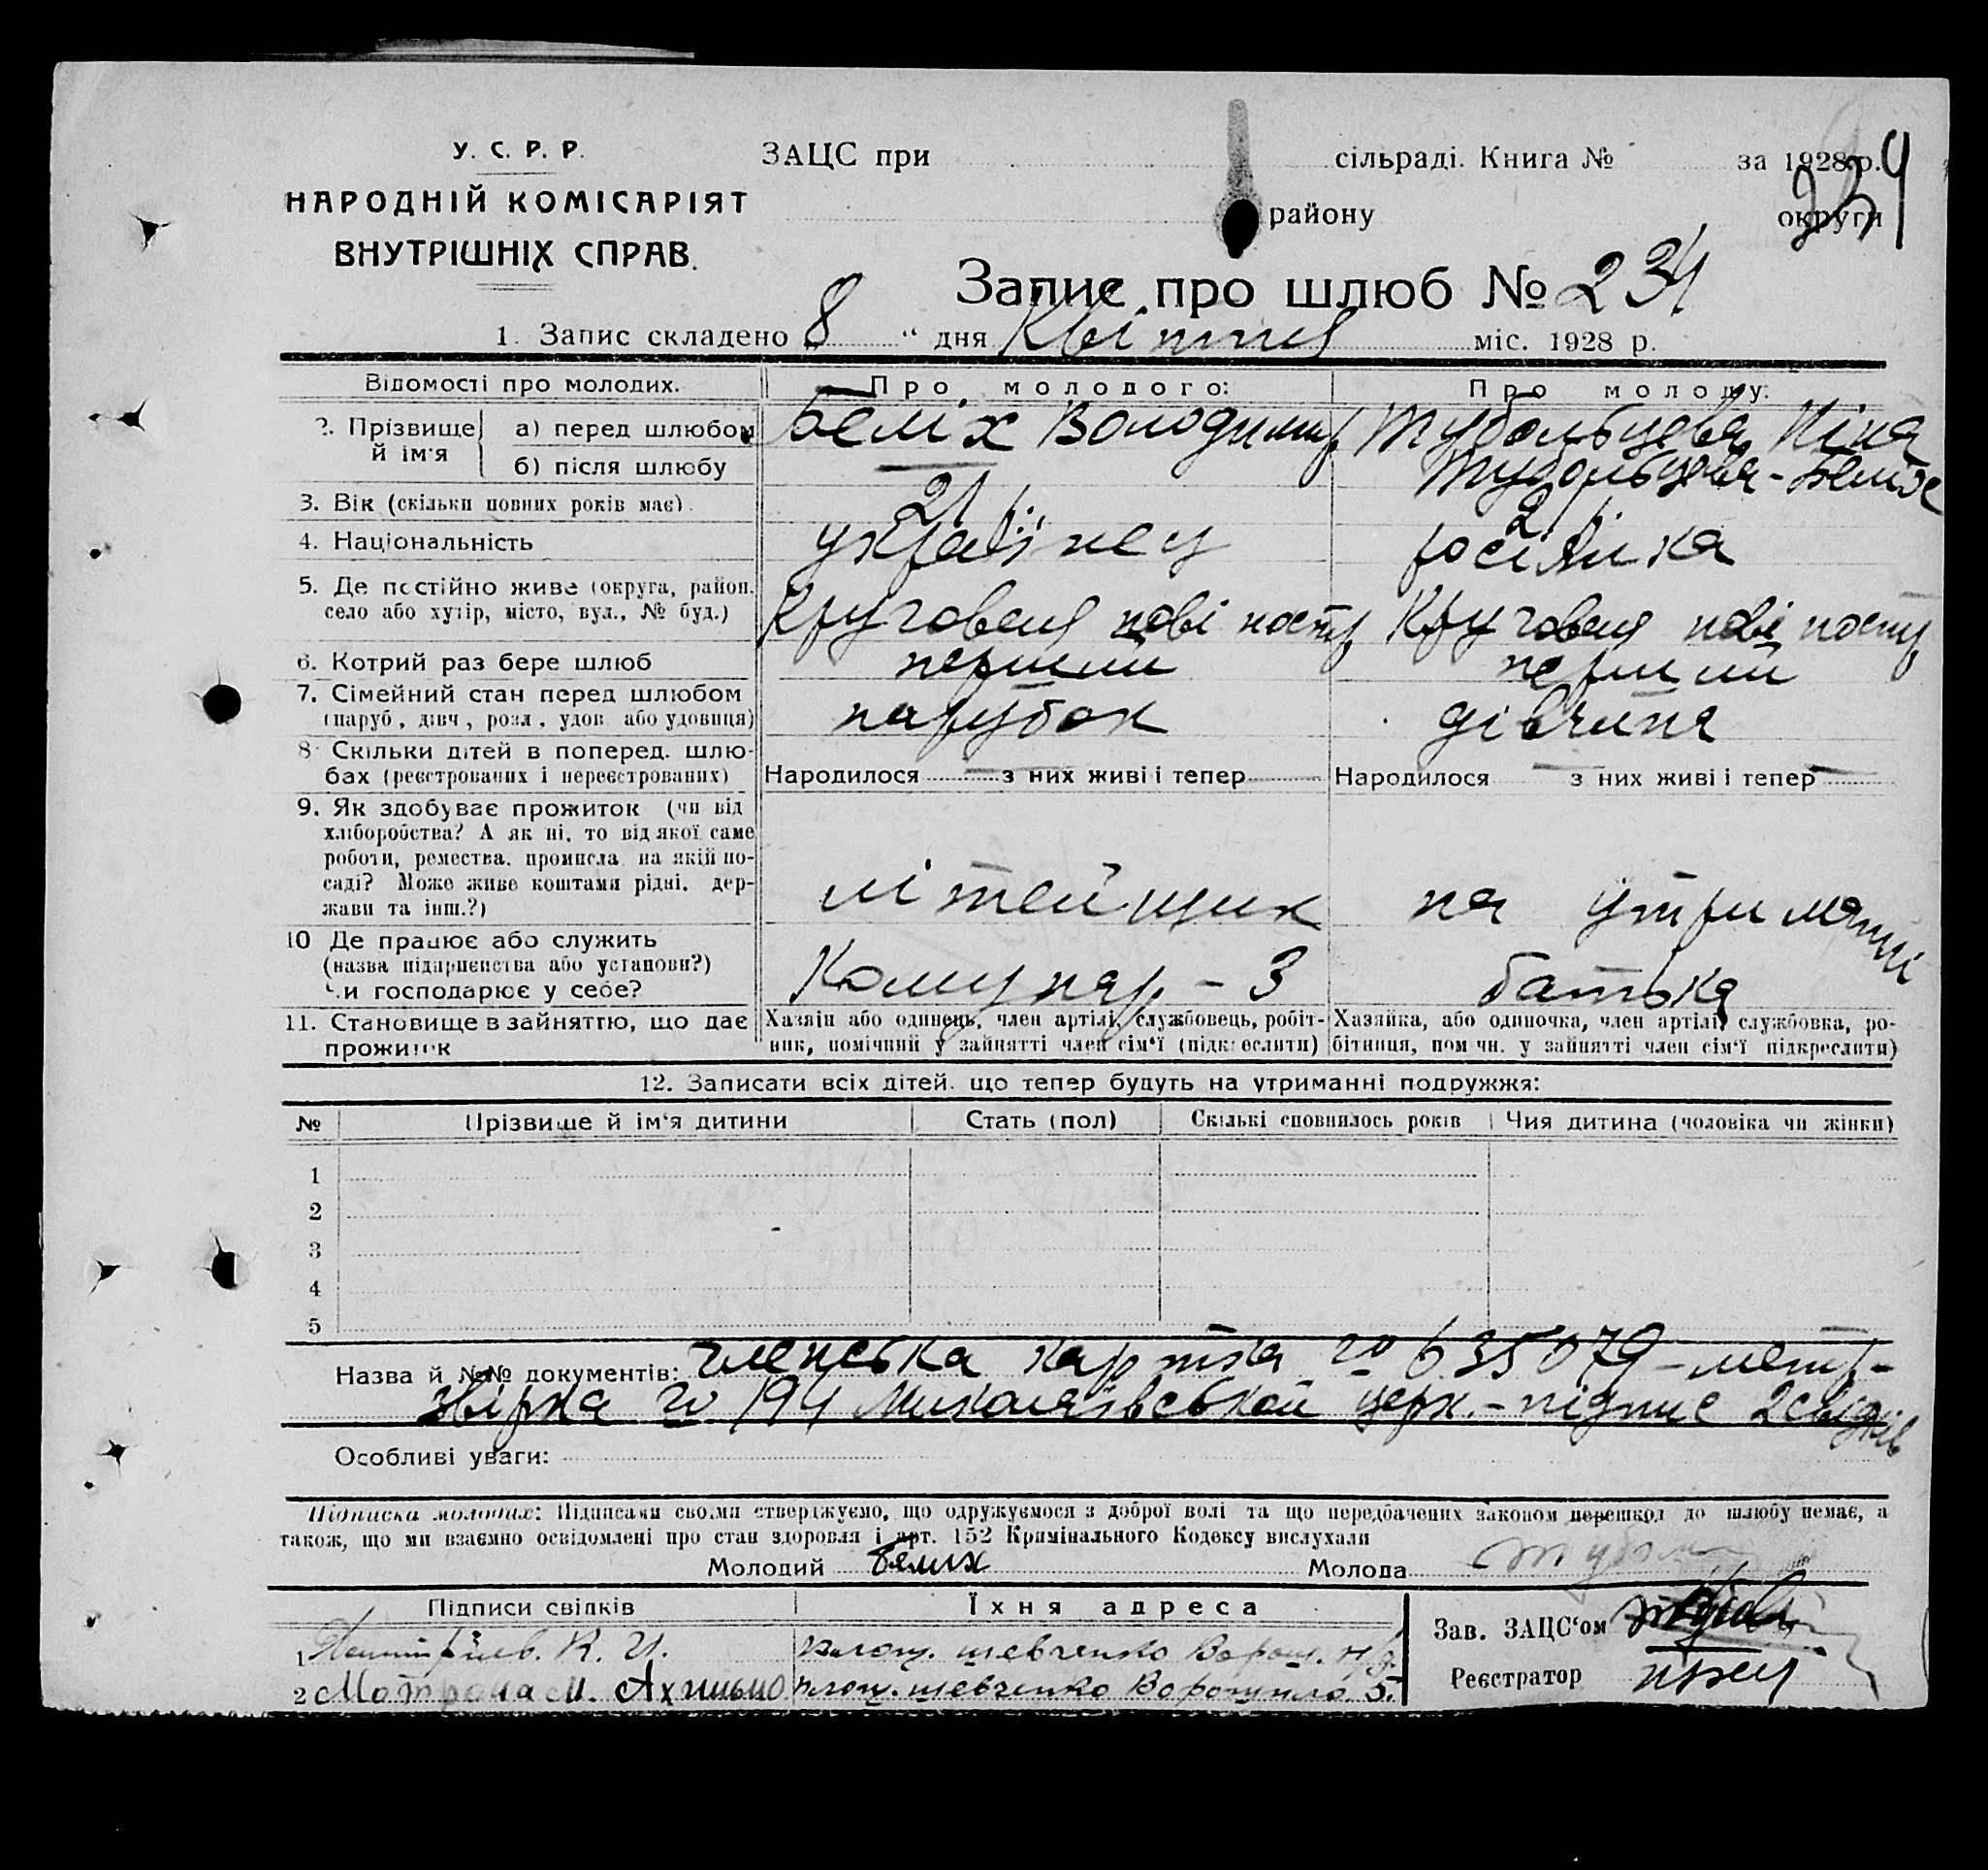 У. С. Р. Р.
НАРОДНІЙ КОМІСАРІЯТ
ВНУТРІШНІХ СПРАВ.
ЗАЦС при сільраді. Книга № за 1928 р.
234
району округи
Запис про шлюб № 234
1. Запис складено „8“ дня Квітня міс. 1928 р.
Відомості про молодих. Про молодого: Про молоду:
2. Прізвище й ім'я
а) перед шлюбом Беліх Володимир Тубольцева Ніна
б) після шлюбу — Тубольцева-Беліх
3. Вік (скільки повних років має). 21 р. 21 р.
4. Національність українец росіянка
5. Де постійно живе (округа, район, село або хутір, місто, вул., № буд.) Кругова
6. Котрий раз бере шлюб перший перший
7. Сімейний стан перед шлюбом
(паруб., дівч., розл., удов. або удовиця) парубок дівчина
8. Скільки дітей в поперед. шлюбах (реєстрованих і нереєстрованих) Народилося — з них живі і тепер Народилося — з них живі і тепер —
9. Як здобуває прожиток (чи від
хліборобства? А як ні, то від якої саме
роботи, ремества, промисла, на якій по-
саді? Може живе коштами рідні, дер-
жави та інш.?) літейщик на утриманні
10. Де працює або служить
(назва підприємства або установи?)
Чи господарює у себе? Комунар - 3 батька
11. Становище в зайняттю, що дає прожиток
Хазяїн або одинець, член артілі, службовець, робіт-
ник, помічний у зайнятті член сім'ї (підкреслити)
Хазяйка, або одиночка, член артілі, службовка, ро-
бітниця, помічн. у зайнятті член сім'ї підкреслити)
12. Записати всіх дітей, що тепер будуть на утриманні подружжя:
№ Прізвище й ім'я дитини Стать (пол) Скількі сповнилось років Чия дитина (чоловіка чи жінки)
1
2
3
4
5
Назва й №№ документів: членська картка № 635079 - метр-
звірка № 194 Миколаївської церк. - підпис 2 свідків
Особливі уваги:
Підписка молодих: Підписами своїми стверджуємо, що одружуємося з доброї волі та що передбачених законом перешкод до шлюбу немає, а
також, що ми взаємно освідомлені про стан здоровля і арт. 152 Кримінального Кодексу вислухали
Молодий Белих Молода
Підписи свідків Їхня адреса
1 К. И. площ. шевченко
2 Мотрона И. площ. шевченко 5.
Зав. ЗАЦС'ом
Реєстратор